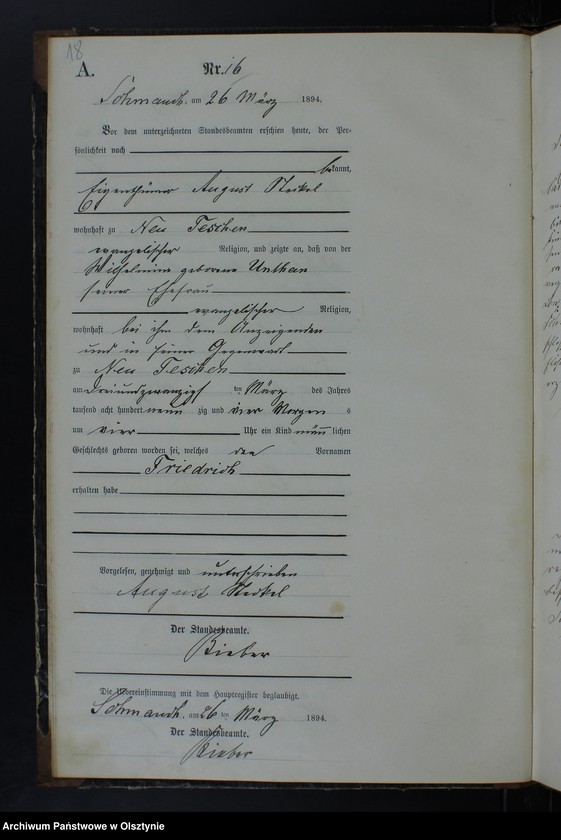 18
A.
Nr. 16
am 26 März 1894.
Vor dem unterzeichneten Standesbeamten erschien heute, der Per-
sönlichkeit nach
bekannt,
Eigenthümer August
wohnhaft zu Neu Teschen
evangelischer Religion, und zeigte an, daß von der
Wilhelmine geborene Unthan
seiner Ehefrau
evangelischer Religion,
wohnhaft bei ihm dem Anzeigenden
und in seiner Gegenwart
zu Neu Teschen
am dreiundzwanzigsten März des Jahres
tausend acht hundert neunzig und vier Morgens
um vier Uhr ein Kind männlichen
Geschlechts geboren worden sei, welches den Vornamen
Friedrich
erhalten habe
Vorgelesen, genehmigt und unterschrieben
August
Der Standesbeamte.
Bieber
Die Uebereinstimmung mit dem Hauptregister beglaubigt.
am 26 ten März 1894.
Der Standesbeamte.
Bieber
Archiwum Państwowe w Olsztynie